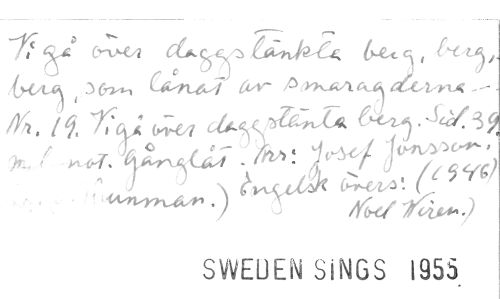 Vi gå över daggstänkta berg, berg,
berg, som lånat av smaragderna --
Nr. 19. Vi gå över daggstänkta berg. Sid. 39
not. Gånglåt. Arr: Josef Jonsson.
unman.) Engelsk övers: (1946)
Noel Wiren.)
SWEDEN SINGS 1955